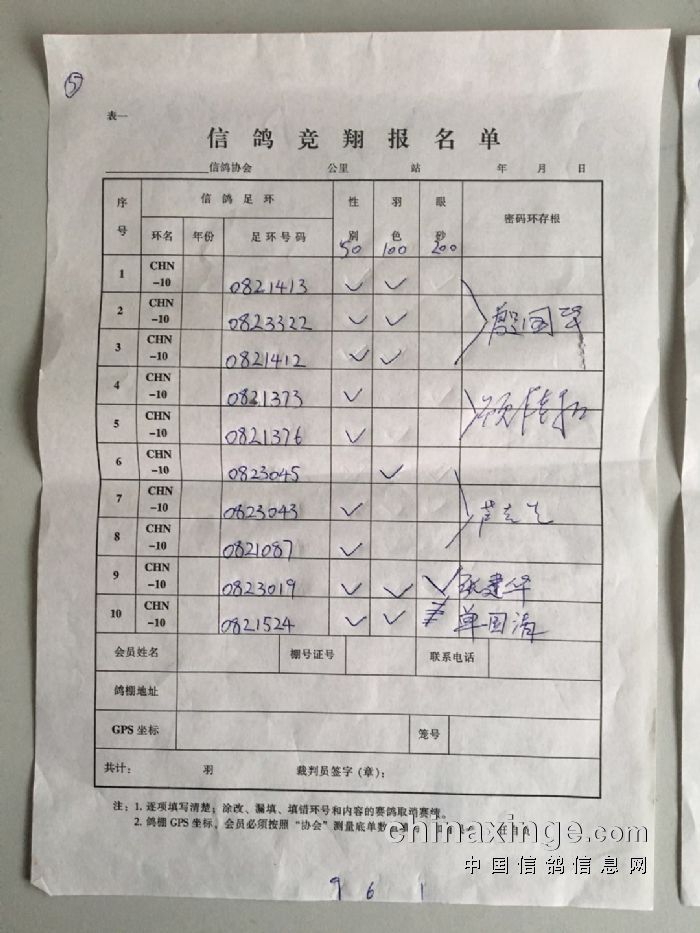 ⑤
表一
信鸽竞翔报名单
信鸽协会 公里 站 年 月 日
序号 信鸽足环 性别 羽色 眼砂 密码环存根
环名 年份 足环号码 50 100 200
1 CHN-10 0821413 ✓ ✓
2 CHN-10 0823322 ✓ ✓ 殷国华
3 CHN-10 0821412 ✓ ✓
4 CHN-10 0821373 ✓
5 CHN-10 0821376 ✓
6 CHN-10 0823045 ✓
7 CHN-10 0823043 ✓
8 CHN-10 0821087 ✓
9 CHN-10 0823019 ✓ ✓ ✓ 张建华
10 CHN-10 0821524 ✓ ✓ 单国清
会员姓名 棚号证号 联系电话
鸽棚地址
GPS 坐标 笼号
共计: 羽 裁判员签字(章):
注:1. 逐项填写清楚;涂改、漏填、填错环号和内容的赛鸽取消赛绩。
2. 鸽棚 GPS 坐标,会员必须按照“协会”测量底单数
chinaxinge.com
中国信鸽信息网
9 6 1